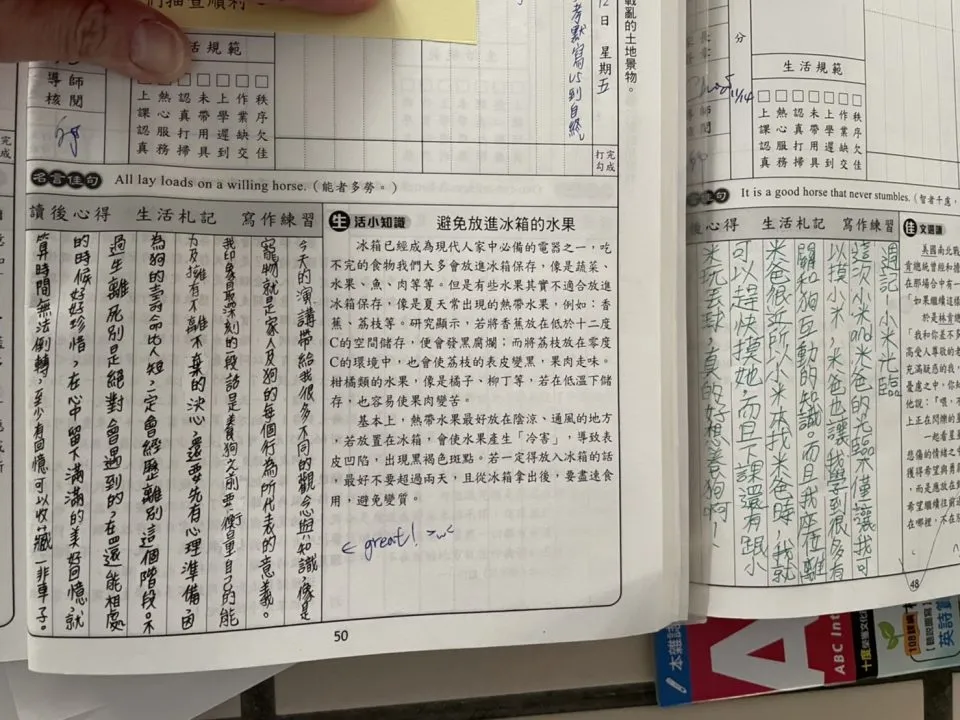 們抽查順利
12日 星期五
考默寫
戰亂的土地景物。
活規範
導師
核閱
上課認真
熱心服務
認真打掃
未帶用具
上學遲到
作業缺交
秩序欠佳
完成
打勾
名言佳句 All lay loads on a willing horse.(能者多勞。)
讀後心得 生活札記 寫作練習
今天的演講帶給我很多不同的觀念與知識,像是
寵物就是家人及狗的每個行為所代表的意義。
我印象最深刻的一段話是養狗之前要衡量自己的能
力及擁有不離不棄的決心,還要先有心理準備,因
為狗的壽命比人短,一定會經歷離別這個階段。不
過生離死別是絕對會遇到的,在四還能相處
的時候好好珍惜,在心中留下滿滿的美好回憶,就
算時間無法倒轉,至少有回憶可以收藏—非車子。
生活小知識 避免放進冰箱的水果
冰箱已經成為現代人家中必備的電器之一,吃
不完的食物我們大多會放進冰箱保存,像是蔬菜、
水果、魚、肉等等。但是有些水果其實不適合放進
冰箱保存,像是夏天常出現的熱帶水果,例如:香
蕉、荔枝等。研究顯示,若將香蕉放在低於十二度
C的空間儲存,便會發黑腐爛;而將荔枝放在零度
C的環境中,也會使荔枝的表皮變黑,果肉走味。
柑橘類的水果,像是橘子、柳丁等,若在低溫下儲
存,也容易使果肉變苦。
基本上,熱帶水果最好放在陰涼、通風的地方
,若放置在冰箱,會使水果產生「冷害」,導致表
皮凹陷,出現黑褐色斑點。若一定得放入冰箱的話
,最好不要超過兩天,且從冰箱拿出後,要盡速食
用,避免變質。
← great! >w<
50
分
生活規範
上課認真
熱心服務
認真打掃
未帶用具
上學遲到
作業缺交
秩序欠佳
11/14
佳句 It is a good horse that never stumbles.(智者千慮,
後心得 生活札記 寫作練習
週記—小米光臨
這次小米和米爸的光臨不僅讓我可
以摸小米,米爸也讓我學到很多有
關和狗互動的知識。而且我座位離
米爸很近所以小米來找米爸時,我就
可以趕快摸她,而且下課還有跟小
米玩丟球,真的好想養狗啊~
佳文選讀
美國南北戰
肯總統曾經和
在那場合中有一
「如果繼續這樣
於是林肯總
「我和你差不多
高受人尊敬的老
充滿疑惑的我,
憂慮之中,你知
他說:『喂,不
上正在閃爍的星
一起看星
悲傷的情緒之中
獲得希望與勇
,而是應放在
希望繼續往前
在哪裡,不在
48
本雜誌
ABC Int
108課綱
英詩